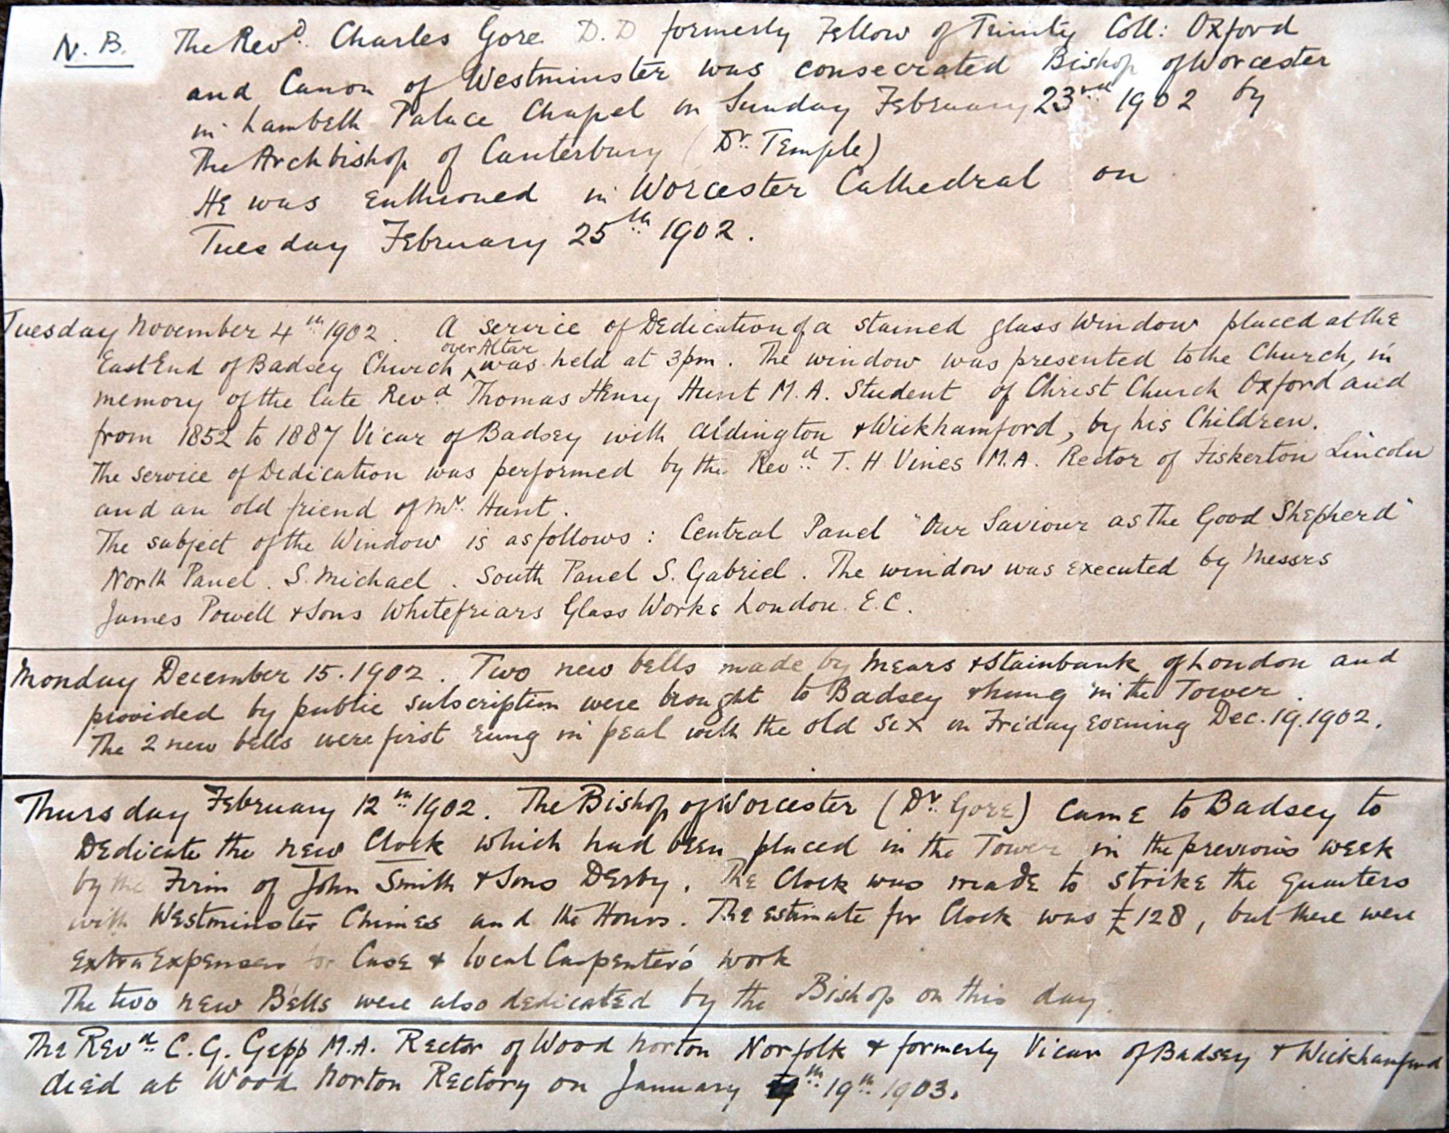 N. B. The Revd. Charles Gore D. D formerly Fellow of Trinity Coll: Oxford
and Canon of Westminster was consecrated Bishop of Worcester
in Lambeth Palace Chapel on Sunday February 23rd 1902 by
The Archbishop of Canterbury (Dr. Temple)
He was enthroned in Worcester Cathedral on
Tuesday February 25th 1902.
Tuesday November 4th 1902. A service of Dedication of a stained glass window placed at the
East End of Badsey Church over Altar was held at 3pm. The window was presented to the Church, in
memory of the late Revd. Thomas Henry Hunt M. A. Student of Christ Church Oxford and
from 1852 to 1887 Vicar of Badsey with Aldington & Wickhamford, by his Children.
The service of Dedication was performed by the Revd. T. H Vines M.A. Rector of Fiskerton Lincoln
and an old friend of Mr. Hunt.
The subject of the Window is as follows: Central Panel "Our Saviour as the Good Shepherd"
North Panel. S. Michael. South Panel S. Gabriel. The window was executed by Messrs
James Powell & Sons Whitefriars Glass Works London. E.C.
Monday December 15. 1902. Two new bells made by Mears & Stainbank of London and
provided by public subscription were brought to Badsey & hung in the Tower.
The 2 new bells were first rung in peal with the old six on Friday evening Dec. 19. 1902.
Thursday February 12th 1902. The Bishop of Worcester (Dr. Gore) came to Badsey to
Dedicate the new Clock which had been placed in the Tower in the previous week
by the Firm of John Smith & Sons Derby. The Clock was made to strike the quarters
with Westminster Chimes and the Hours. The estimate for Clock was £128, but there were
extra Expenses for Case & local Carpenter's work
The two new Bells were also dedicated by the Bishop on this day.
The Revd. C. G. Gepp M.A. Rector of Wood Norton Norfolk & formerly Vicar of Badsey & Wickhamford
died at Wood Norton Rectory on January 19th 1903.